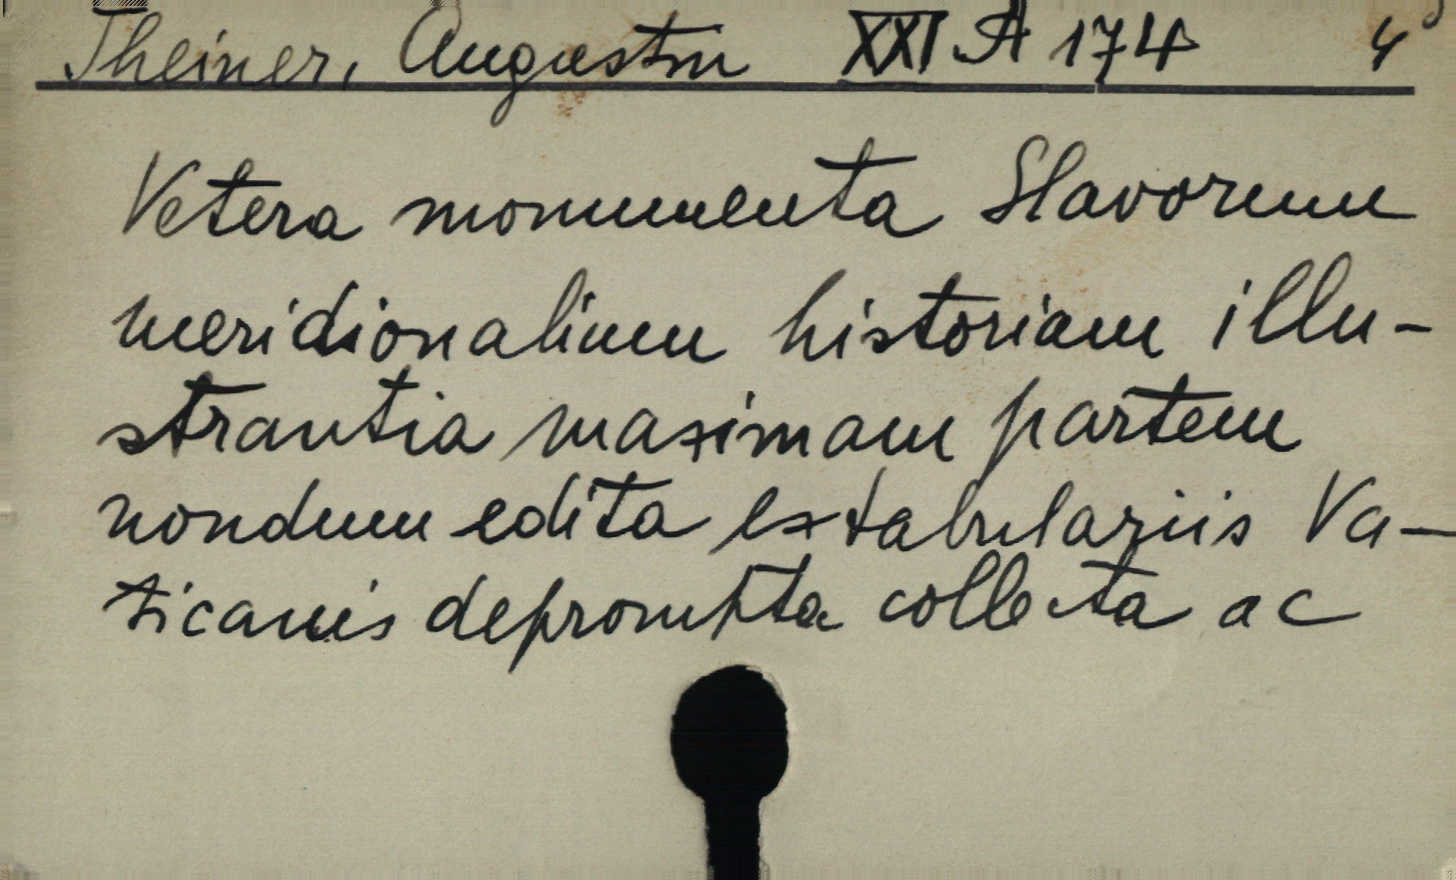 Theiner, Augustin XXI A 174 4°
Vetera monumenta Slavorum
meridionalium historiam illu-
strantia maximam partem
nondum edita ex tabulariis Va-
ticanis deprompta collecta ac